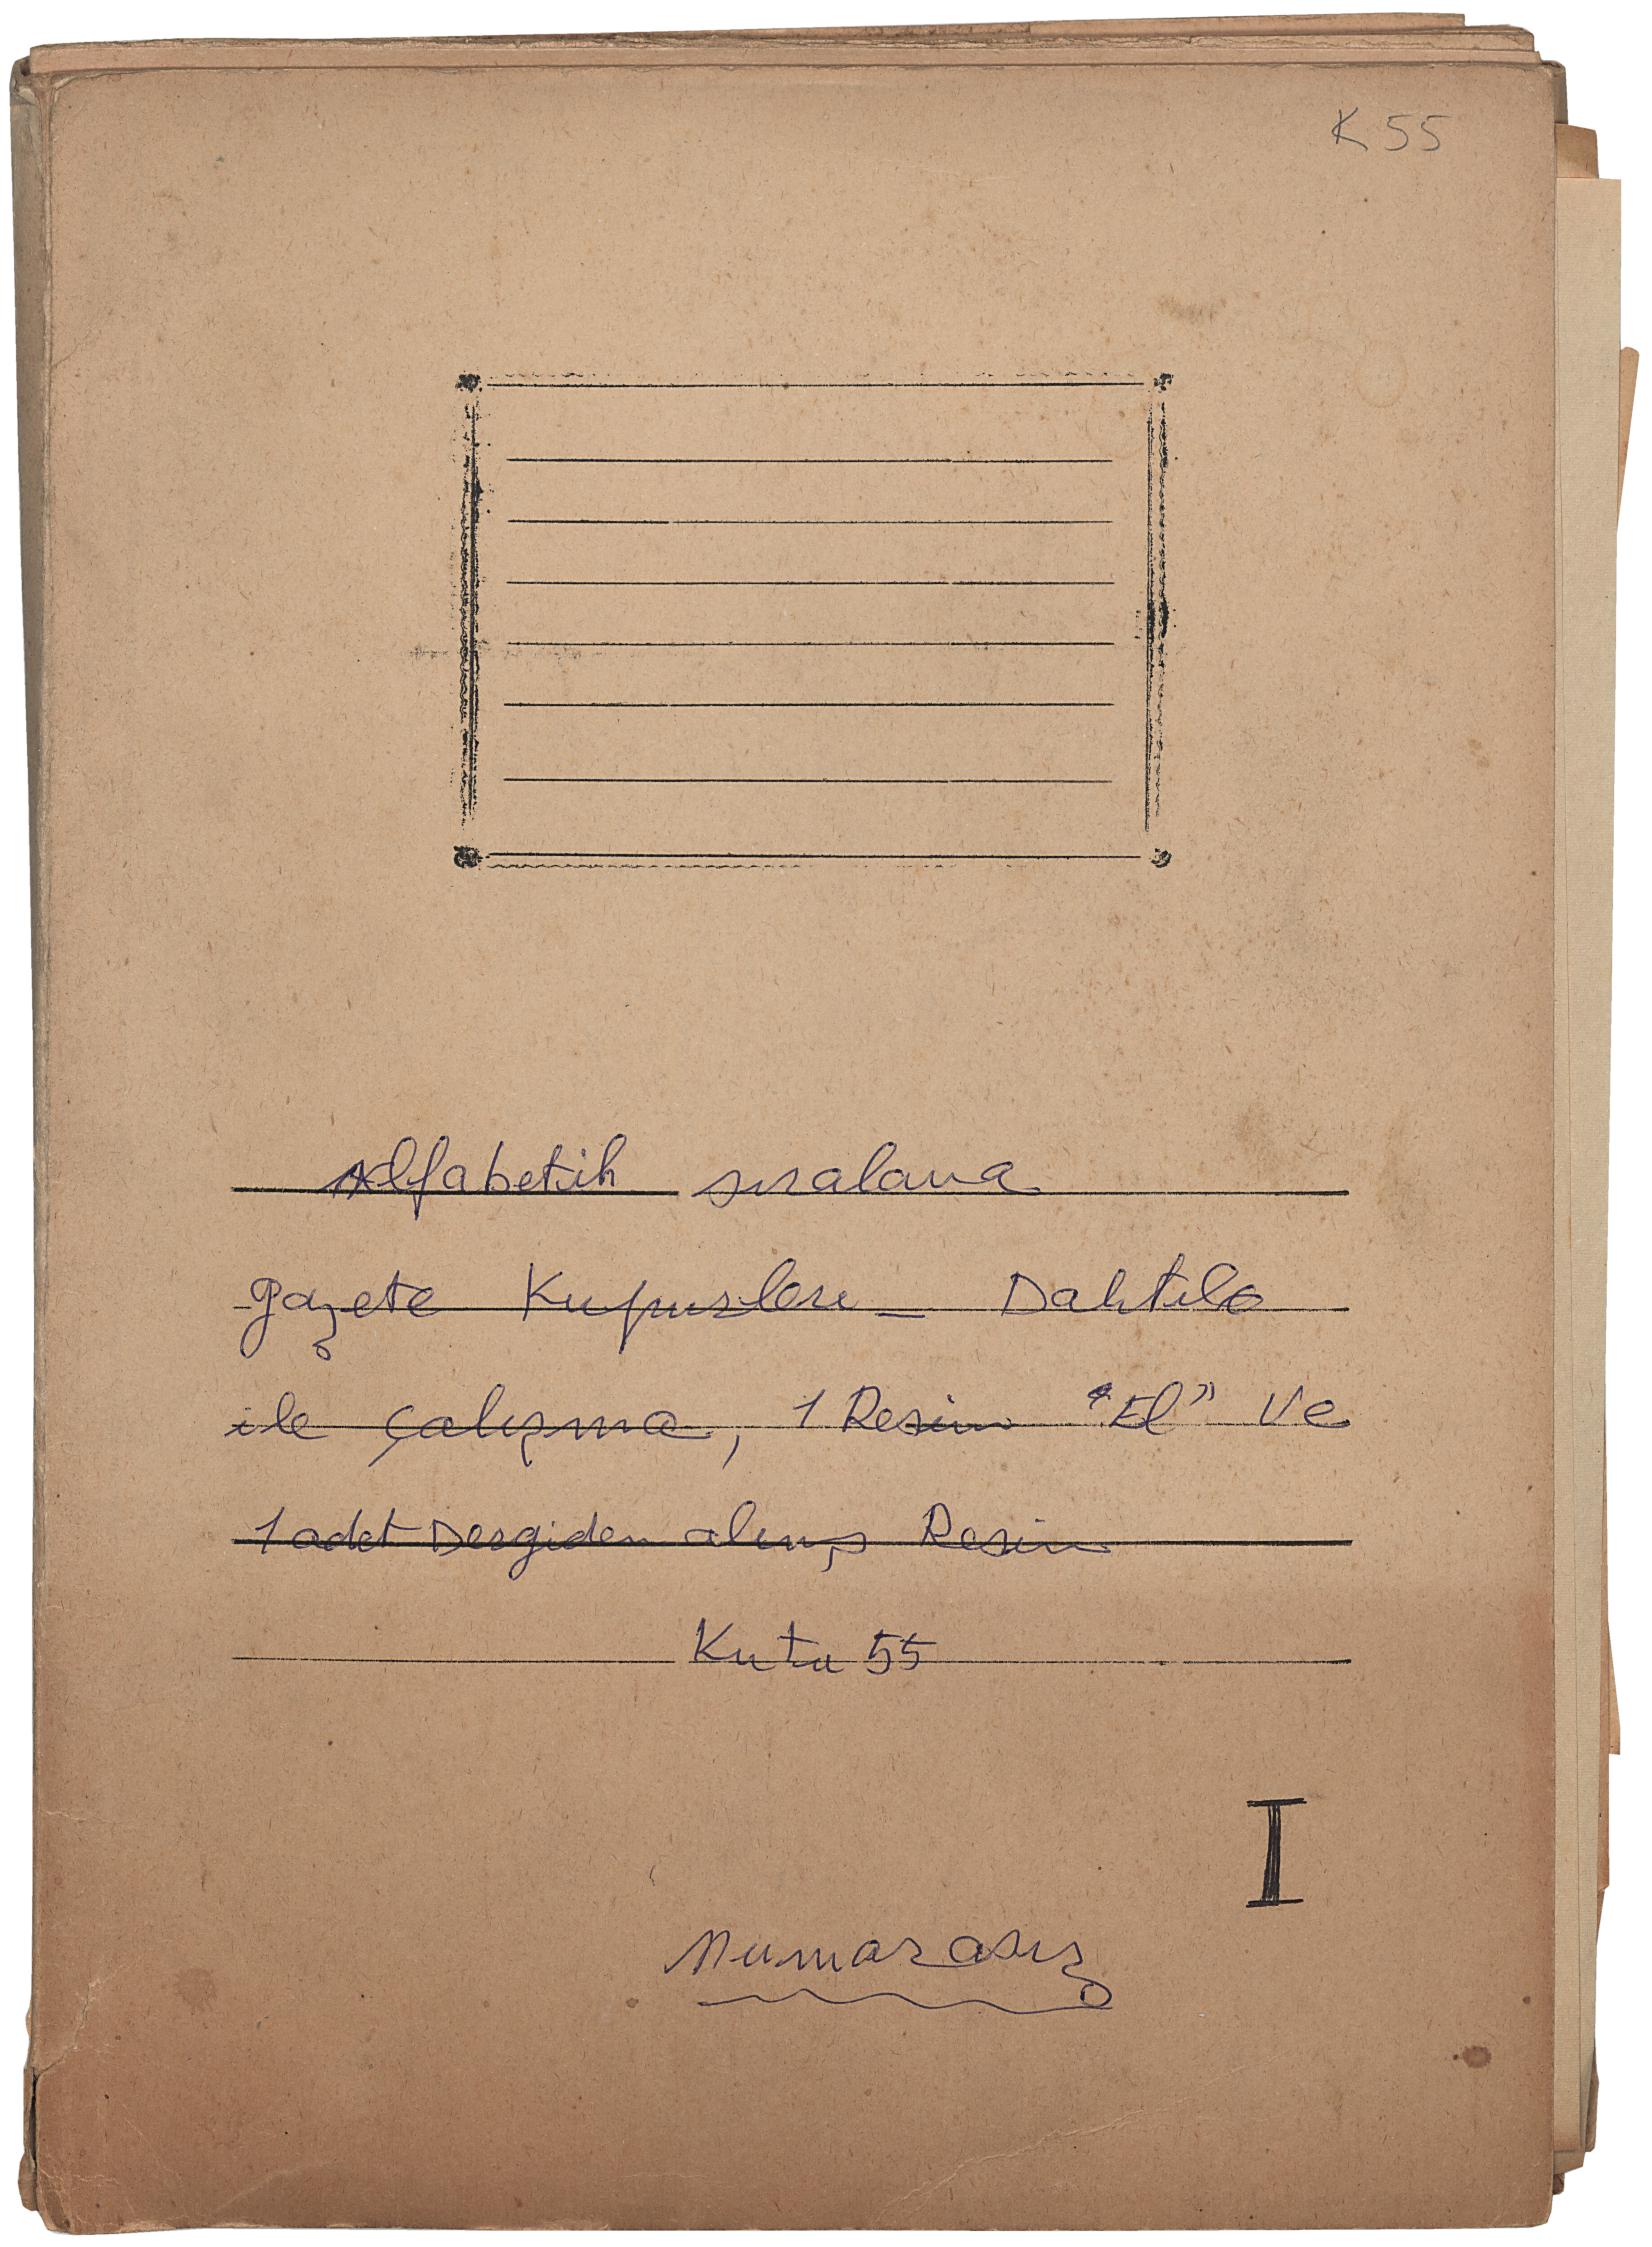 K 55
Alfabetik sıralama
gazete Kupurleri – Daktilo
ile çalışma, 1 Resim "El" Ve
1 adet Dergiden alınış Resim
Kutu 55
I
Numarasız